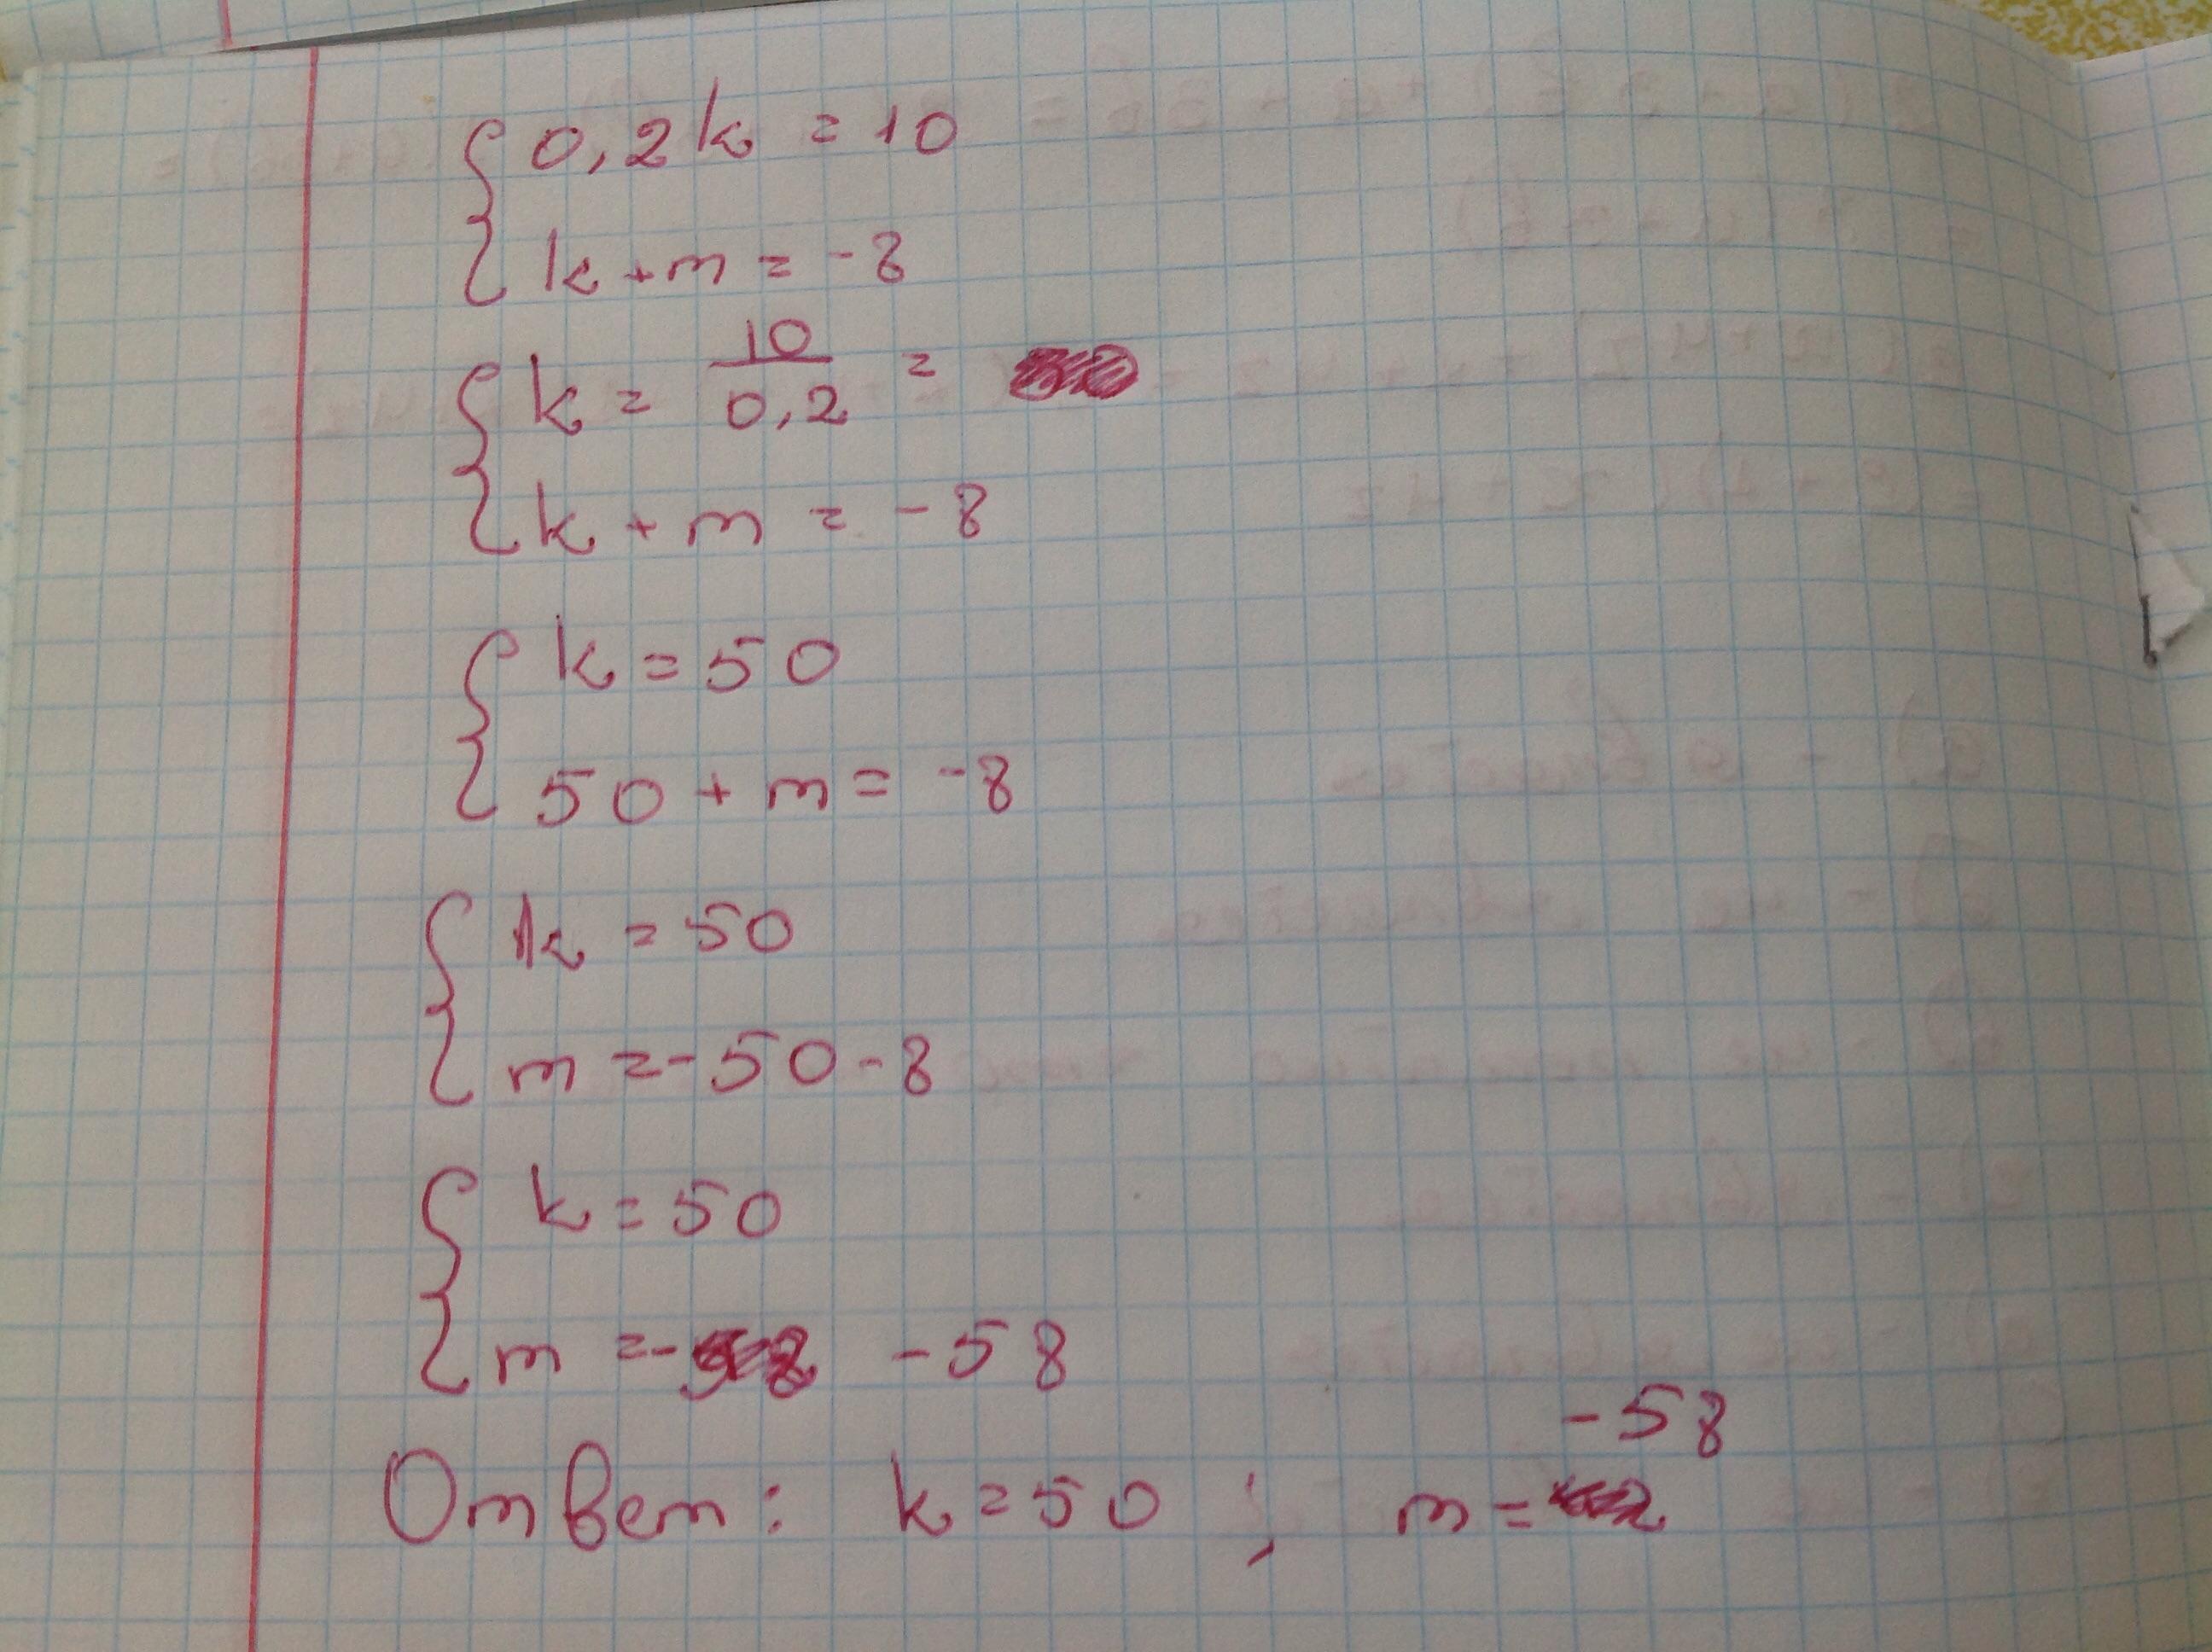 0,2k = 10
k + m = -8
k = 10/0,2 =
k + m = -8
k = 50
50 + m = -8
k = 50
m = -50 - 8
k = 50
m = - -58
Ответ: k = 50 ; m = -58